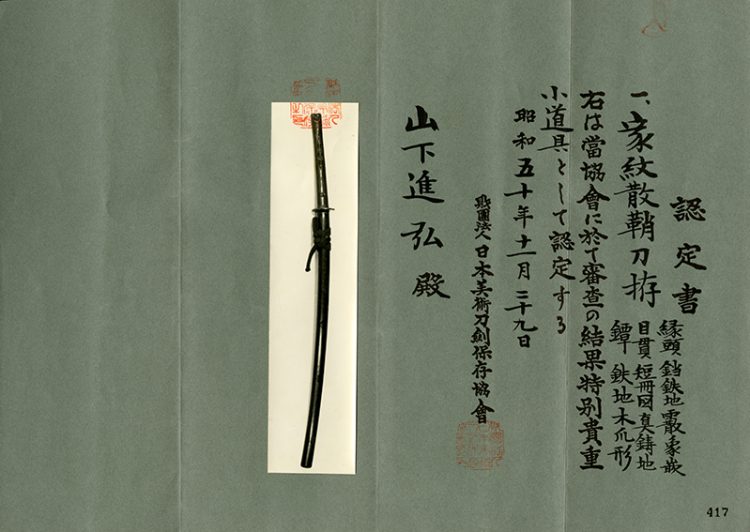 認定書
一、家紋散鞘刀拵
縁頭 鐺鉄地霰象嵌
目貫 短冊図真鋳地
鐔 鉄地木爪形
右は當協會に於て審査の結果特別貴重
小道具として認定する
昭和五十年十一月二十九日
財團法人日本美術刀劍保存協會
山下進弘殿
417